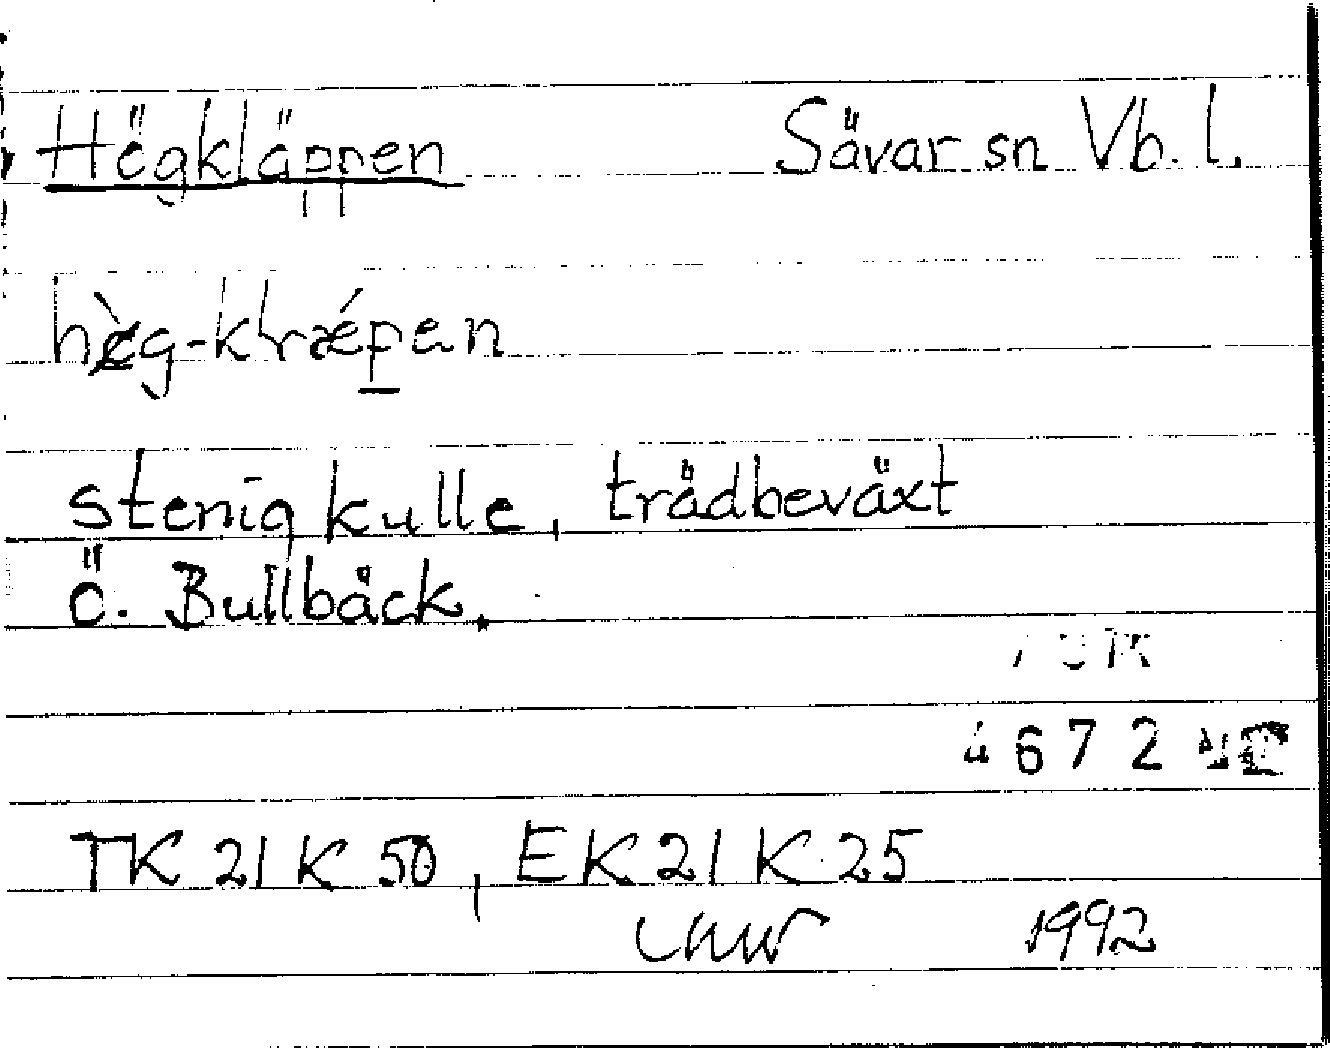 Högkläppen Sävar sn Vb. l.
stenig kulle, trädbeväxt
Ö. Bullbäck.
4672
TK 21 K 50, EK 21 K 25
1992